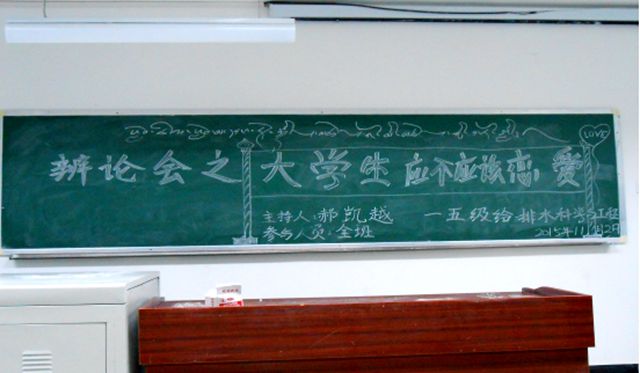 LOVE
辨论会之大学生应不应该恋爱
主持人:郝凯越 一五级给排水科学与工程
参与人员:全班 2015年11月2日